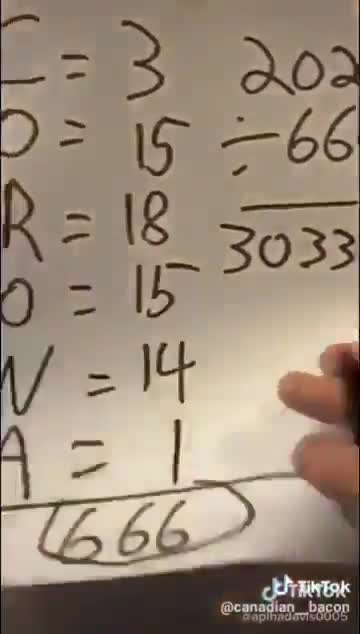 C = 3
O = 15
R = 18
O = 15
N = 14
A = 1
666
202
÷ 66
3033
TikTok
@canadian__bacon